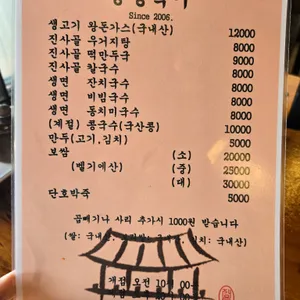 Since 2006.
생고기 왕돈가스(국내산) 12000
진사골 우거지탕 8000
진사골 떡만두국 9000
진사골 칼국수 8000
생면 잔치국수 8000
생면 비빔국수 8000
생면 동치미국수 8000
(계절) 콩국수(국산콩) 10000
만두(고기,김치) 5000
보쌈 (소) 20000
(벨기에산) (중) 25000
(대) 30000
단호박죽 5000
곱빼기나 사리 추가시 1000원 받습니다
(쌀: 국내산, 김치: 국내산)
개점 오전 10:00